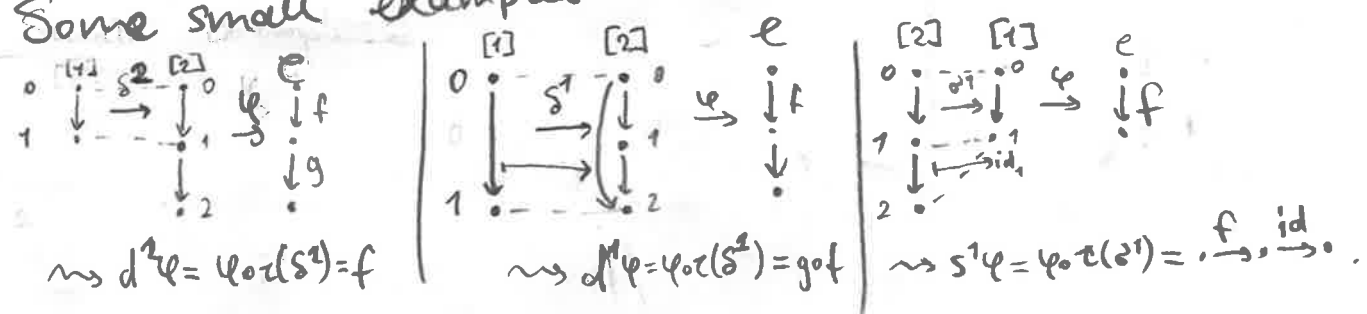 Some small examples
[1] [2] e
0 δ² 0 φ f
1 1 g
2
⇝ d²φ = φ∘τ(δ²) = f
[1] [2] e
0 δ¹ 0 φ f
1
1 2
⇝ d¹φ = φ∘τ(δ¹) = g∘f
[2] [1] e
0 σ¹ 0 φ f
1 1
id₁
2
⇝ s¹φ = φ∘τ(σ¹) = . f→ . id→ .